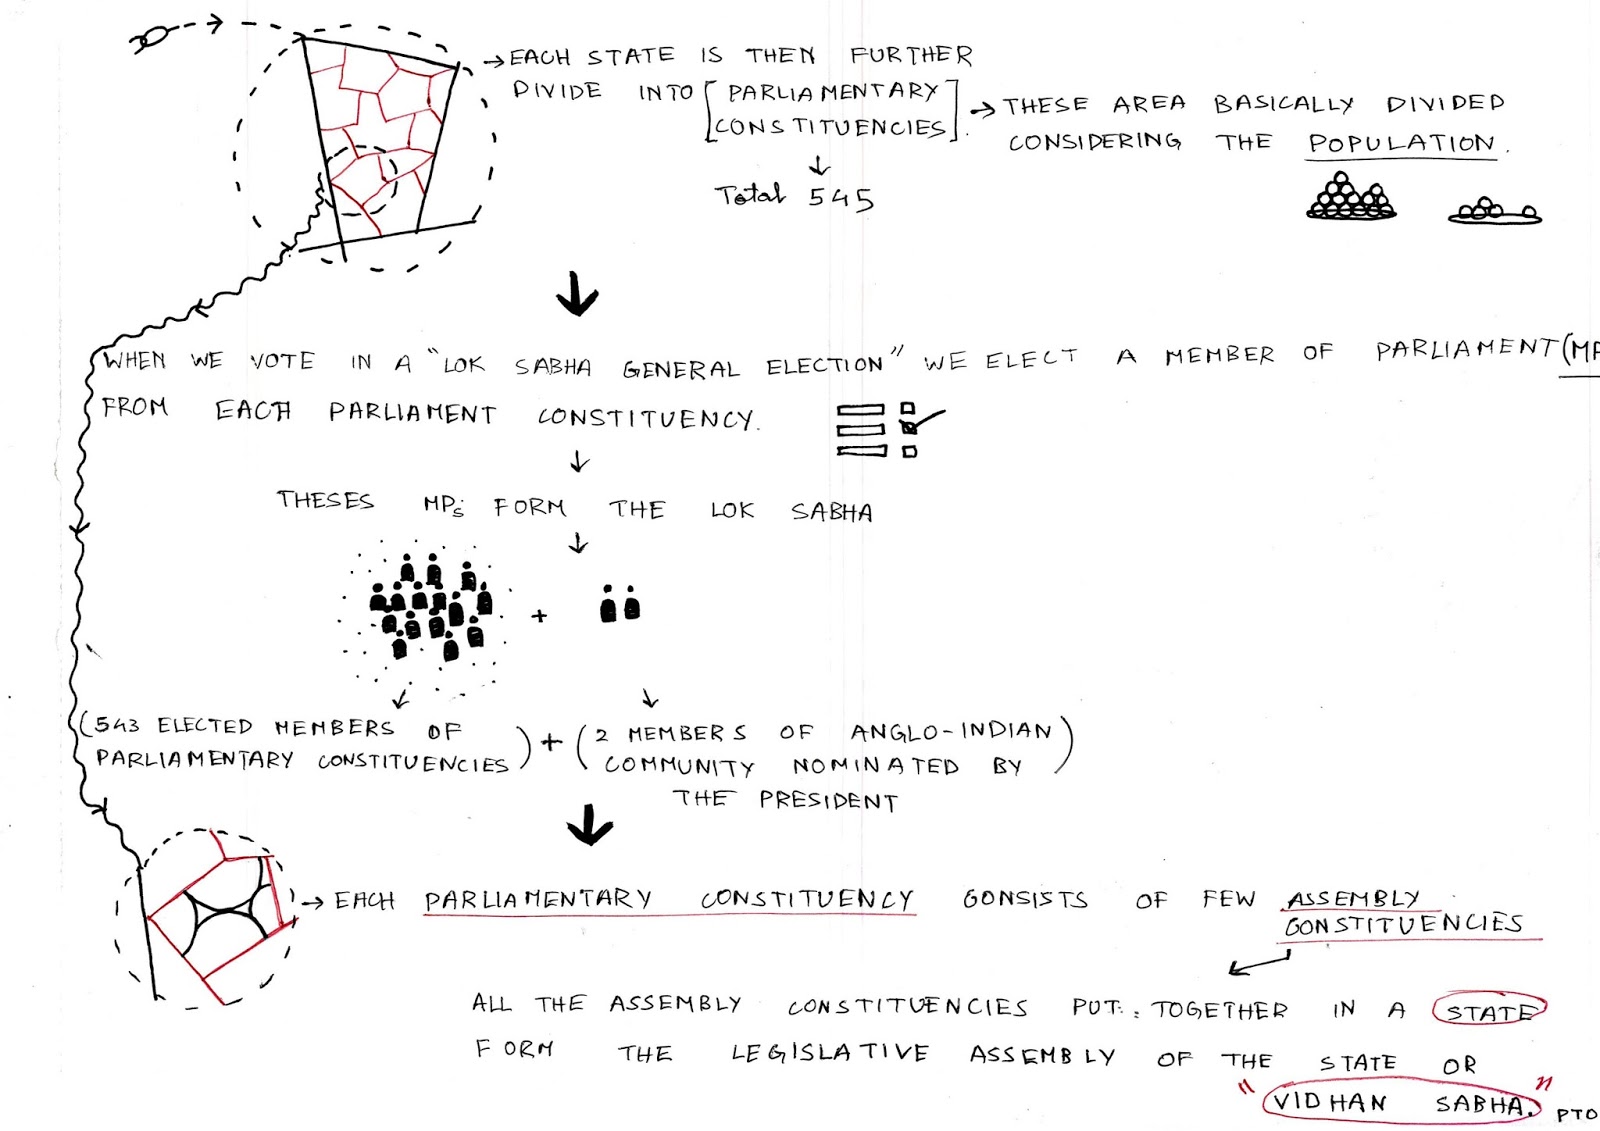 → EACH STATE IS THEN FURTHER
DIVIDE INTO [PARLIAMENTARY
CONSTITUENCIES].
→ THESE AREA BASICALLY DIVIDED
CONSIDERING THE POPULATION.
↓
Total 545
WHEN WE VOTE IN A "LOK SABHA GENERAL ELECTION" WE ELECT A MEMBER OF PARLIAMENT (MP
FROM EACH PARLIAMENT CONSTITUENCY.
THESES MPs FORM THE LOK SABHA
+
(543 ELECTED MEMBERS OF
PARLIAMENTARY CONSTITUENCIES)
+
(2 MEMBERS OF ANGLO-INDIAN
COMMUNITY NOMINATED BY)
THE PRESIDENT
→ EACH PARLIAMENTARY CONSTITUENCY CONSISTS OF FEW ASSEMBLY
CONSTITUENCIES
ALL THE ASSEMBLY CONSTITUENCIES PUT TOGETHER IN A STATE
FORM THE LEGISLATIVE ASSEMBLY OF THE STATE OR
"VIDHAN SABHA."
PTO